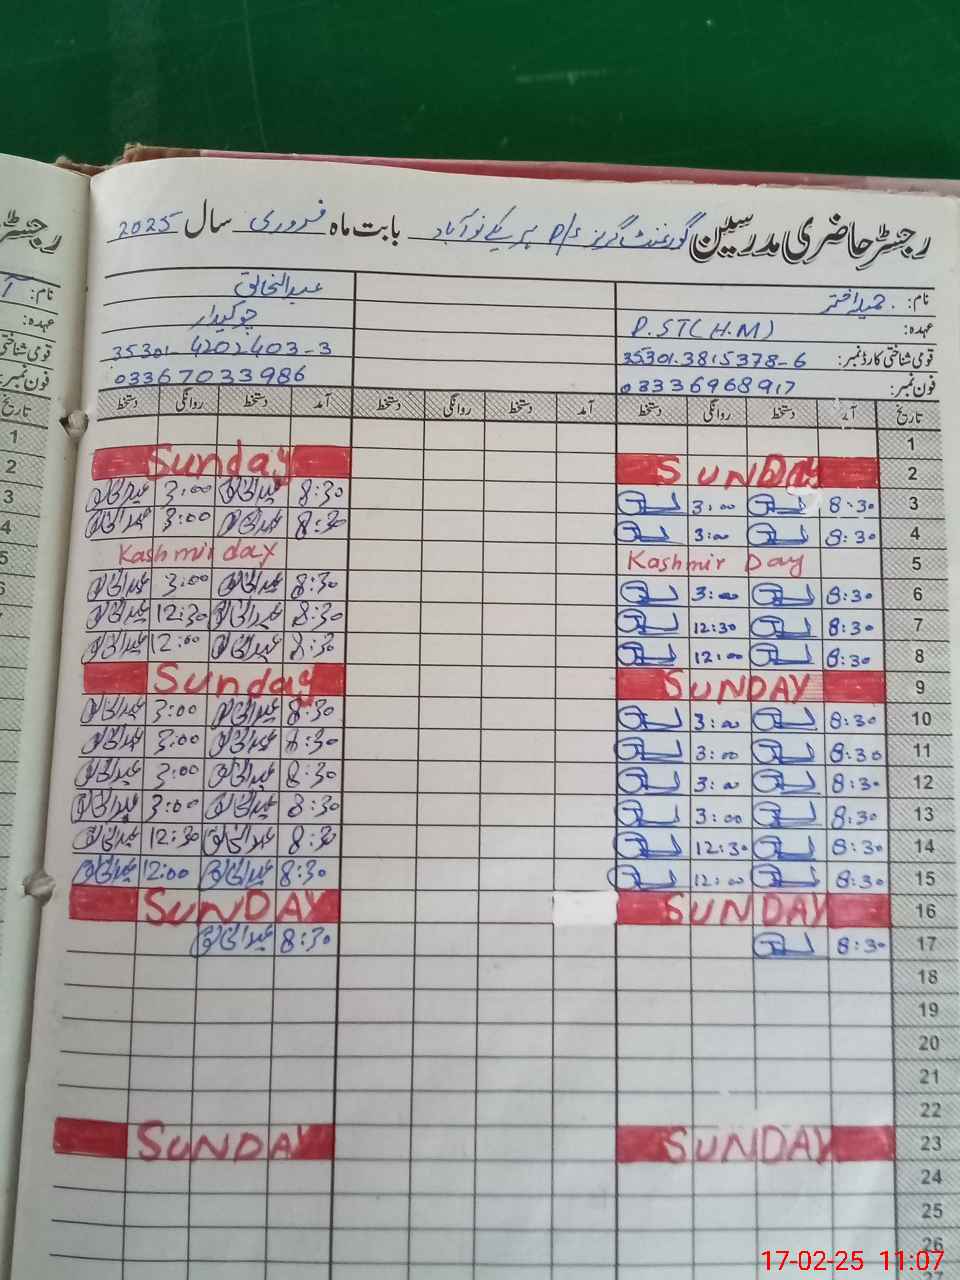 رجسٹر حاضری مدرسین گورنمنٹ گرلز P/S ہریکے نوآباد بابت ماہ فروری سال 2025
نام: حمیدہ اختر عبدالخالق
عہدہ: P.ST(H.M) چوکیدار
قومی شناختی کارڈ نمبر: 35301.3815378-6 35301-4202403-3
فون نمبر: 03336968917 03367033986
تاریخ آمد دستخط روانگی دستخط آمد دستخط روانگی دستخط آمد دستخط روانگی دستخط
1
2 SUNDAY Sunday
3 8:30 3:00 8:30 عبدالخالق 3:00 عبدالخالق
4 8:30 3:00 8:30 عبدالخالق 3:00 عبدالخالق
5 Kashmir Day Kashmir day
6 8:30 3:00 8:30 عبدالخالق 3:00 عبدالخالق
7 8:30 12:30 8:30 عبدالخالق 12:30 عبدالخالق
8 8:30 12:00 8:30 عبدالخالق 12:00 عبدالخالق
9 SUNDAY Sunday
10 8:30 3:00 8:30 عبدالخالق 3:00 عبدالخالق
11 8:30 3:00 8:30 عبدالخالق 3:00 عبدالخالق
12 8:30 3:00 8:30 عبدالخالق 3:00 عبدالخالق
13 8:30 3:00 8:30 عبدالخالق 3:00 عبدالخالق
14 8:30 12:30 8:30 عبدالخالق 12:30 عبدالخالق
15 8:30 12:00 8:30 عبدالخالق 12:00 عبدالخالق
16 SUNDAY SUNDAY
17 8:30 8:30 عبدالخالق
18
19
20
21
22
23 SUNDAY SUNDAY
24
25
26
17-02-25 11:07